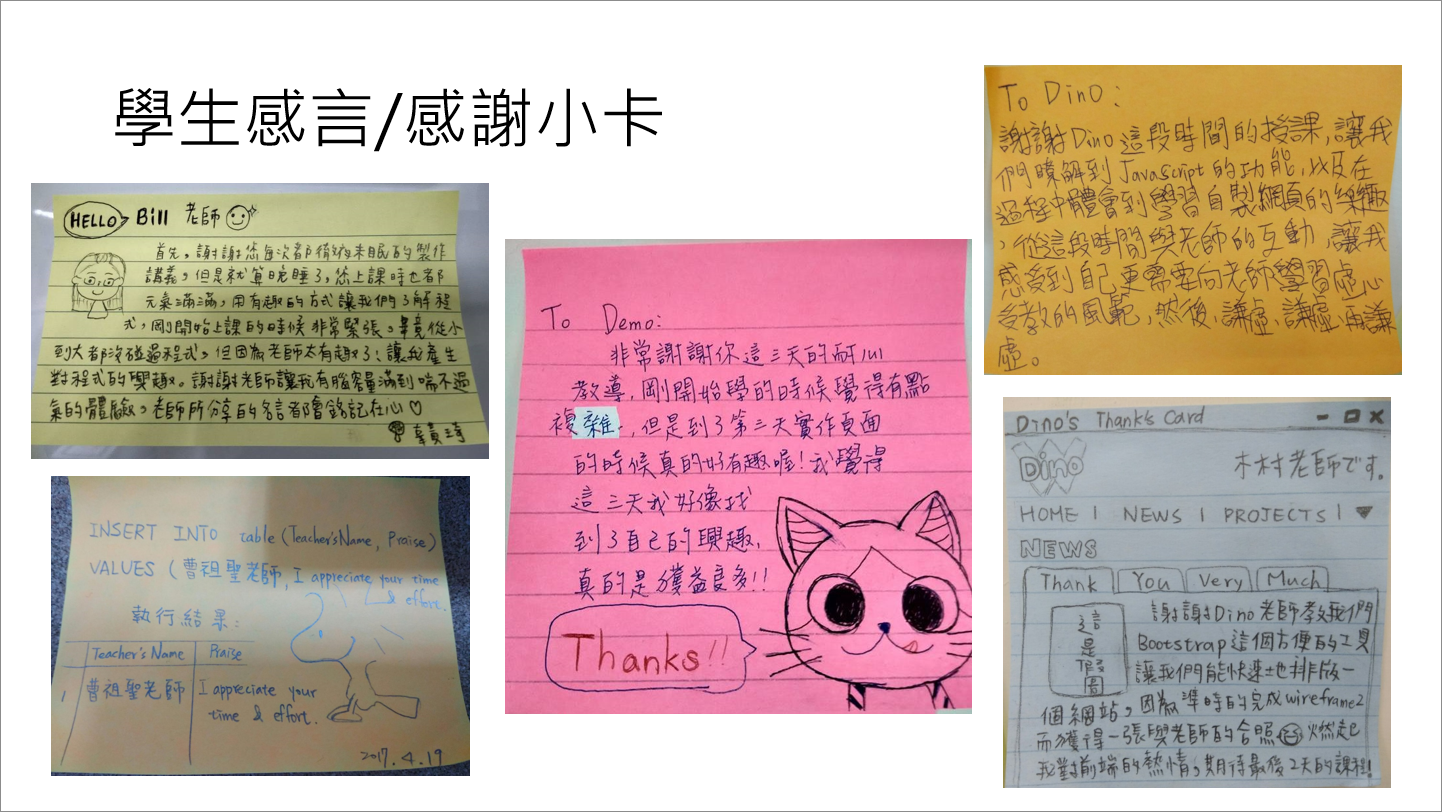 學生感言/感謝小卡
HELLO Bill 老師
首先，謝謝您每次都徹夜未眠的製作
講義，但是就算晚睡了，您上課時也都
元氣滿滿，用有趣的方式讓我們了解程
式，剛開始上課的時候非常緊張。畢竟從小
到大都沒碰過程式，但因為老師太有趣了！讓我產生
對程式的興趣。謝謝老師讓我有腦容量滿到喘不過
氣的體驗，老師所分享的名言都會銘記在心♡
INSERT INTO table (Teacher's Name, Praise)
VALUES (曹祖聖老師, I appreciate your time
& effort.
執行結果：
Teacher's Name Praise
1 曹祖聖老師 I appreciate your
time & effort.
2017.4.19
To Demo:
非常謝謝你這三天的耐心
教導，剛開始學的時候覺得有點
複雜，但是到了第三天實作頁面
的時候真的好有趣喔！我覺得
這三天我好像找
到了自己的興趣，
真的是獲益良多!!
Thanks!!
To Dino:
謝謝Dino這段時間的授課，讓我
們瞭解到Javascript的功能，以及在
過程中體會到學習自製網頁的樂趣
，從這段時間與老師的互動，讓我
感受到自己更需要向老師學習虛心
受教的風範，然後，謙虛，謙虛，再謙
虛。
Dino's Thank's Card
Dino 木村老師です。
HOME | NEWS | PROJECTS |
NEWS
Thank You Very Much
這是假圖
謝謝Dino老師教我們
Bootstrap這個方便的工具
讓我們能快速地排版一
個網站，因為準時的完成wireframe2
而獲得一張與老師的合照 燃起
我對前端的熱情，期待最後2天的課程!